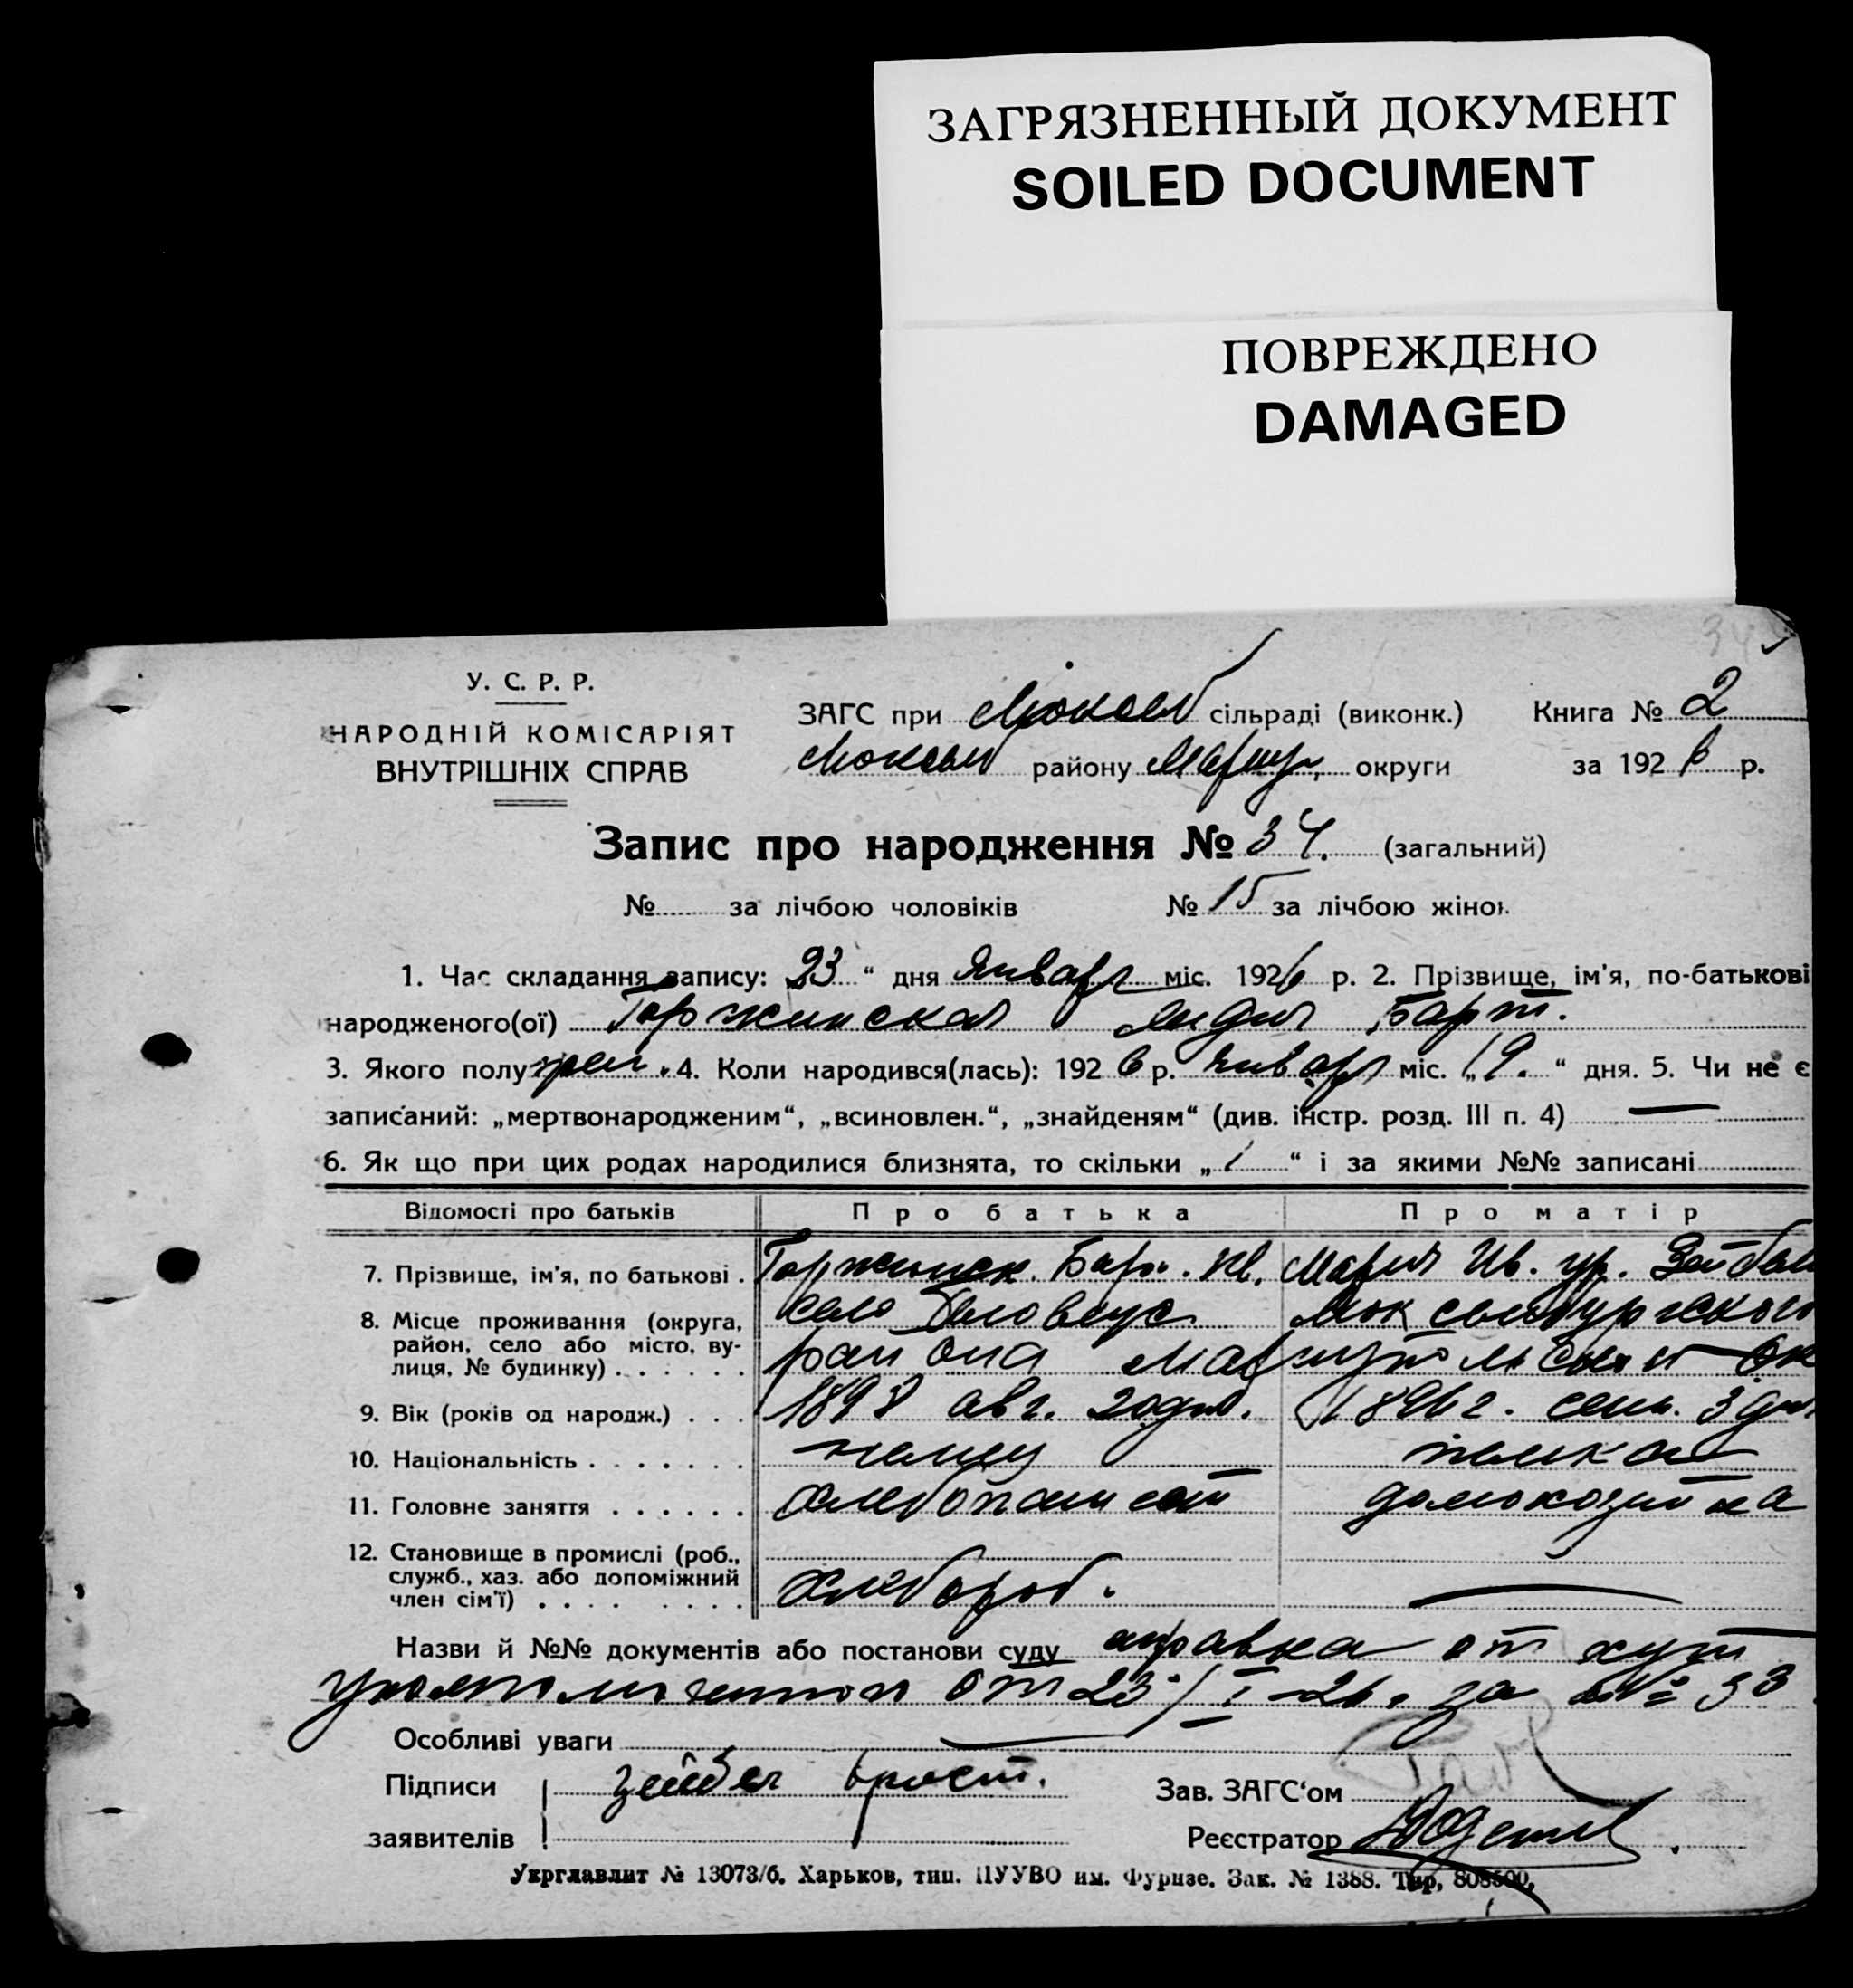 ЗАГРЯЗНЕННЫЙ ДОКУМЕНТ
SOILED DOCUMENT
ПОВРЕЖДЕНО
DAMAGED
У. С. Р. Р.
НАРОДНІЙ КОМІСАРІЯТ
ВНУТРІШНІХ СПРАВ
ЗАГС при сільраді (виконк.) Книга № 2
району Мариуп. округи за 1926 р.
Запис про народження № 34. (загальний)
№ за лічбою чоловіків № 15 за лічбою жінок
1. Час складання запису: 23 “ дня Января міс. 1926 р. 2. Прізвище, ім'я, по-батькові
народженого(ої) Горжинская Лидия Барт.
3. Якого полу жен. 4. Коли народився(лась): 1926 р. Января міс. „19.“ дня. 5. Чи не є
записаний: „мертвонародженим“, „всиновлен.“, „знайденям“ (див. інстр. розд. III п. 4) —
6. Як що при цих родах народилися близнята, то скільки „1“ і за якими №№ записані
Відомості про батьків Про батька Про матір
7. Прізвище, ім'я, по батькові . Горжинск. Мария Ив. ур.
8. Місце проживання (округа,
район, село або місто, ву-
лиця, № будинку) . . . . . .
село
района
9. Вік (років од народж.) . . . 1898 авг. 1896 г. сент. 3 дня
10. Національність . . . . . . . немец немка
11. Головне заняття . . . . . . хлебопашест домохозяйка
12. Становище в промислі (роб.,
служб., хаз. або допоміжний
член сім'ї) . . . . . . . .
хлебороб. —
Назви й №№ документів або постанови суду справка от хут
уполномоченного от 23/I-26. за № 33
Особливі уваги —
Підписи
заявителів
Зав. ЗАГС'ом
Реєстратор
Укрглавлит № 13073/б. Харьков, тип. ПУУВО им. Фрунзе. Зак. № 1388. Тир. 808500.